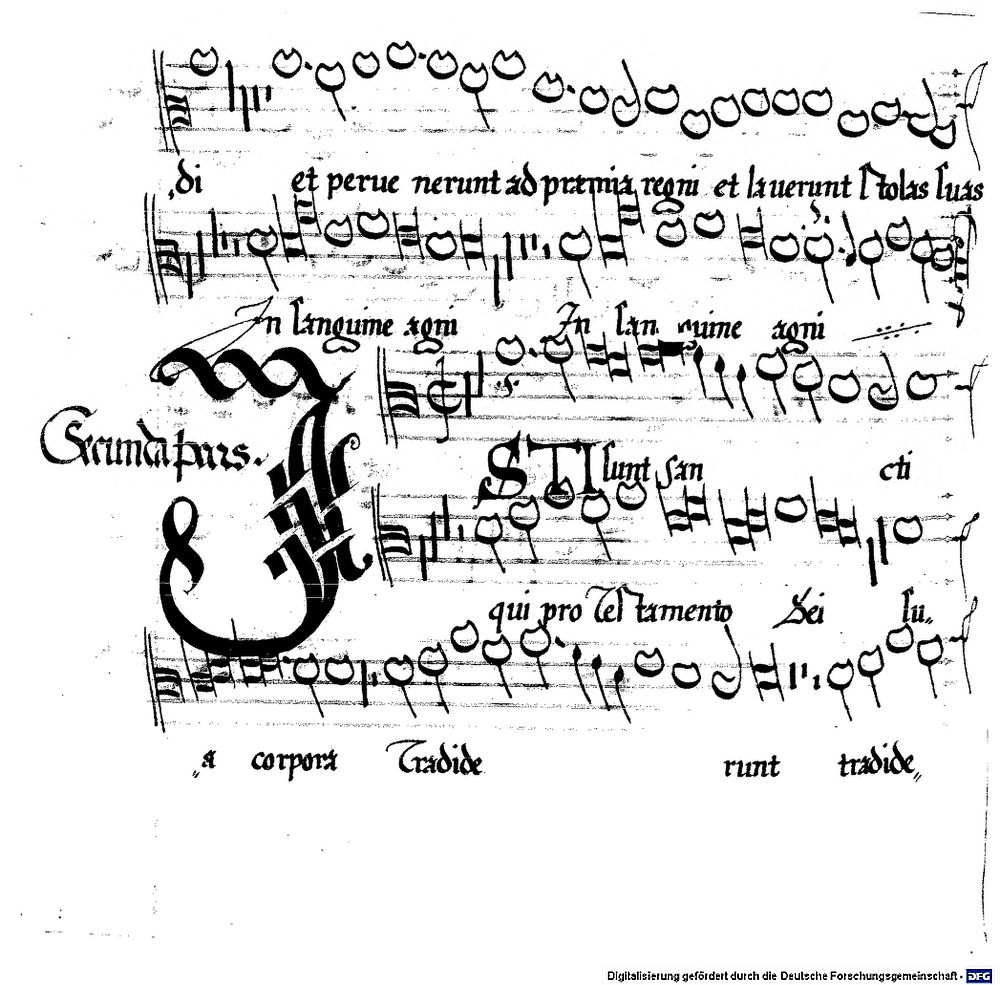 di et perue nerunt ad præmia regni et lauerunt stolas suas
In sanguine agni In san guine agni
Secunda pars.
ISTI sunt san cti
qui pro Testamento Dei su„
„a corpora Tradide runt tradide„
Digitalisierung gefördert durch die Deutsche Forschungsgemeinschaft - DFG